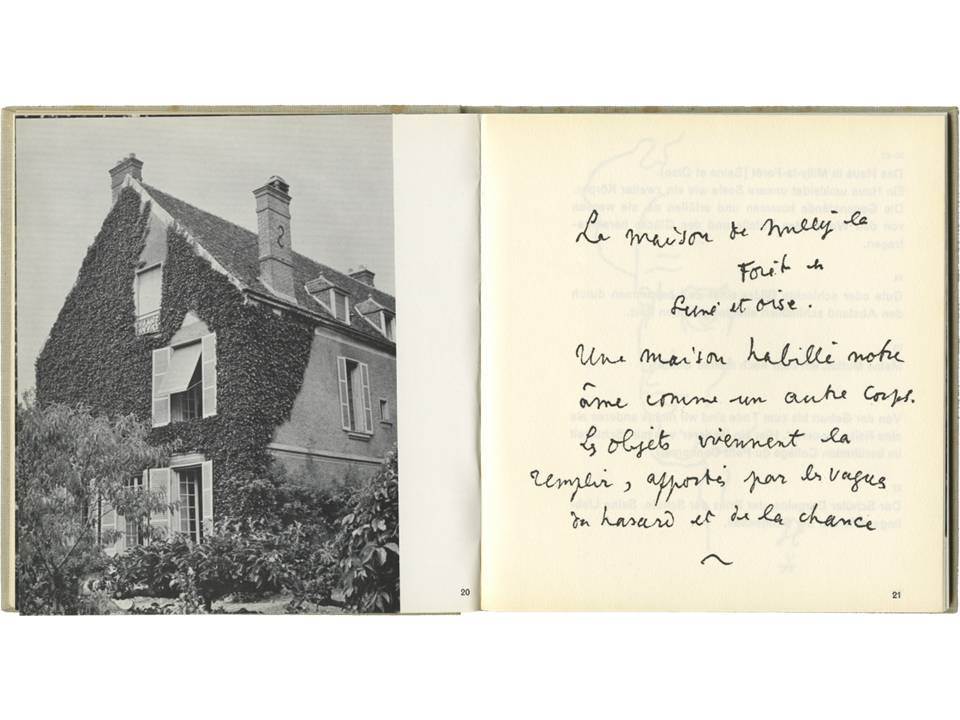 20
La maison de Milly la
Forêt en
Seine et oise.
Une maison habille notre
âme comme un autre corps.
Les objets viennent la
remplir, apportés par les vagues
du hasard et de la chance
21